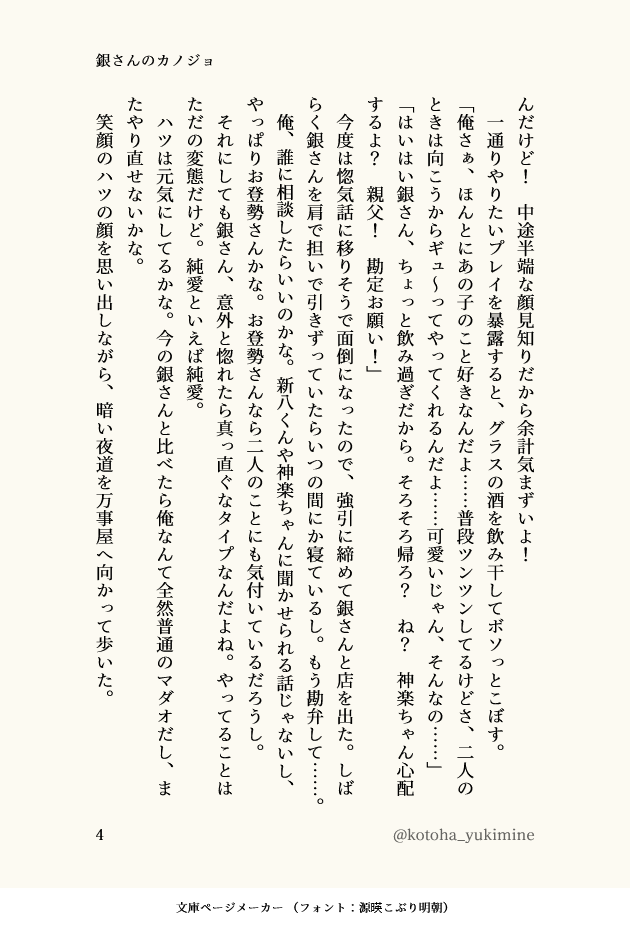 銀さんのカノジョ
んだけど！　中途半端な顔見知りだから余計気まずいよ！
　一通りやりたいプレイを暴露すると、グラスの酒を飲み干してボソっとこぼす。
「俺さぁ、ほんとにあの子のこと好きなんだよ……普段ツンツンしてるけどさ、二人の
ときは向こうからギュ～ってやってくれるんだよ……可愛いじゃん、そんなの……」
「はいはい銀さん、ちょっと飲み過ぎだから。そろそろ帰ろ？　ね？　神楽ちゃん心配
するよ？　親父！　勘定お願い！」
　今度は惚気話に移りそうで面倒になったので、強引に締めて銀さんと店を出た。しば
らく銀さんを肩で担いで引きずっていたらいつの間にか寝ているし。もう勘弁して……。
　俺、誰に相談したらいいのかな。新八くんや神楽ちゃんに聞かせられる話じゃないし、
やっぱりお登勢さんかな。お登勢さんなら二人のことにも気付いているだろうし。
　それにしても銀さん、意外と惚れたら真っ直ぐなタイプなんだよね。やってることは
ただの変態だけど。純愛といえば純愛。
　ハツは元気にしてるかな。今の銀さんと比べたら俺なんて全然普通のマダオだし、ま
たやり直せないかな。
　笑顔のハツの顔を思い出しながら、暗い夜道を万事屋へ向かって歩いた。
4
@kotoha_yukimine
文庫ページメーカー （フォント：源暎こぶり明朝）